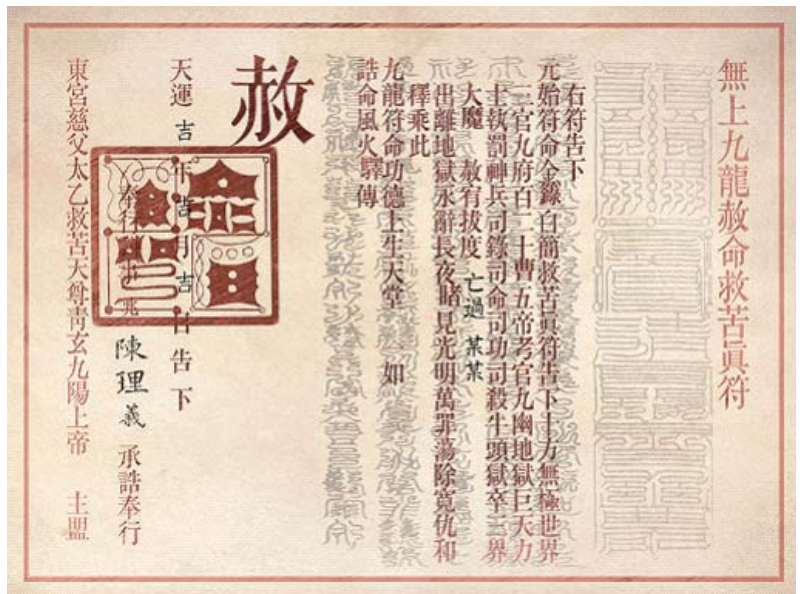 無上九龍赦命救苦眞符
右符告下
元始符命金籙白簡救苦眞符告下十方無極世界
三官九府百二十曹五帝考官九幽地獄巨天力
士執罰神兵司錄司命司功司殺牛頭獄卒三界
大魔　赦宥拔度　亡過　某某
出離地獄永辭長夜睹見光明萬罪蕩除冤仇和
釋乘此
九龍符命功德上生天堂　如
誥命風火驛傳
赦
天運吉年吉月吉日告下
奉行 事 陳理義承誥奉行
東宮慈父太乙救苦天尊靑玄九陽上帝　主盟